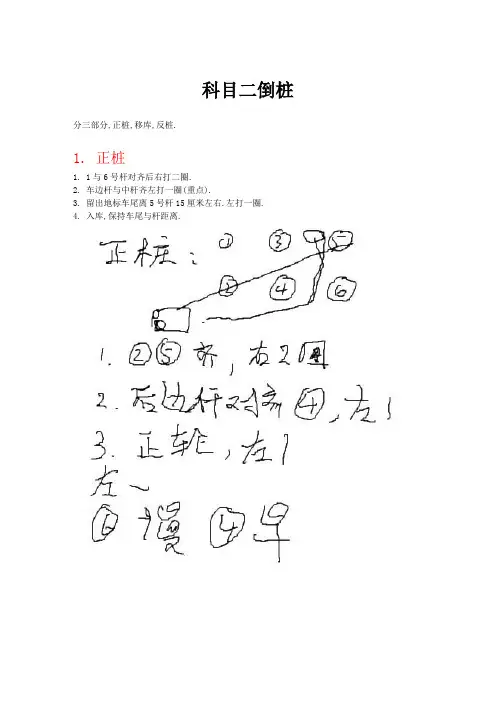 科目二倒桩
分三部分,正桩,移库,反桩.
1. 正桩
1. 1与6号杆对齐后右打二圈.
2. 车边杆与中杆齐左打一圈(重点).
3. 留出地标车尾离5号杆15厘米左右.左打一圈.
4. 入库,保持车尾与杆距离.
正桩: ① ③ ⑤
② ④ ⑥
1. ②⑤齐,右2圈
2. 后边杆对齐④,左1
3. 正轮,左1
左~
⑥慢 ④早